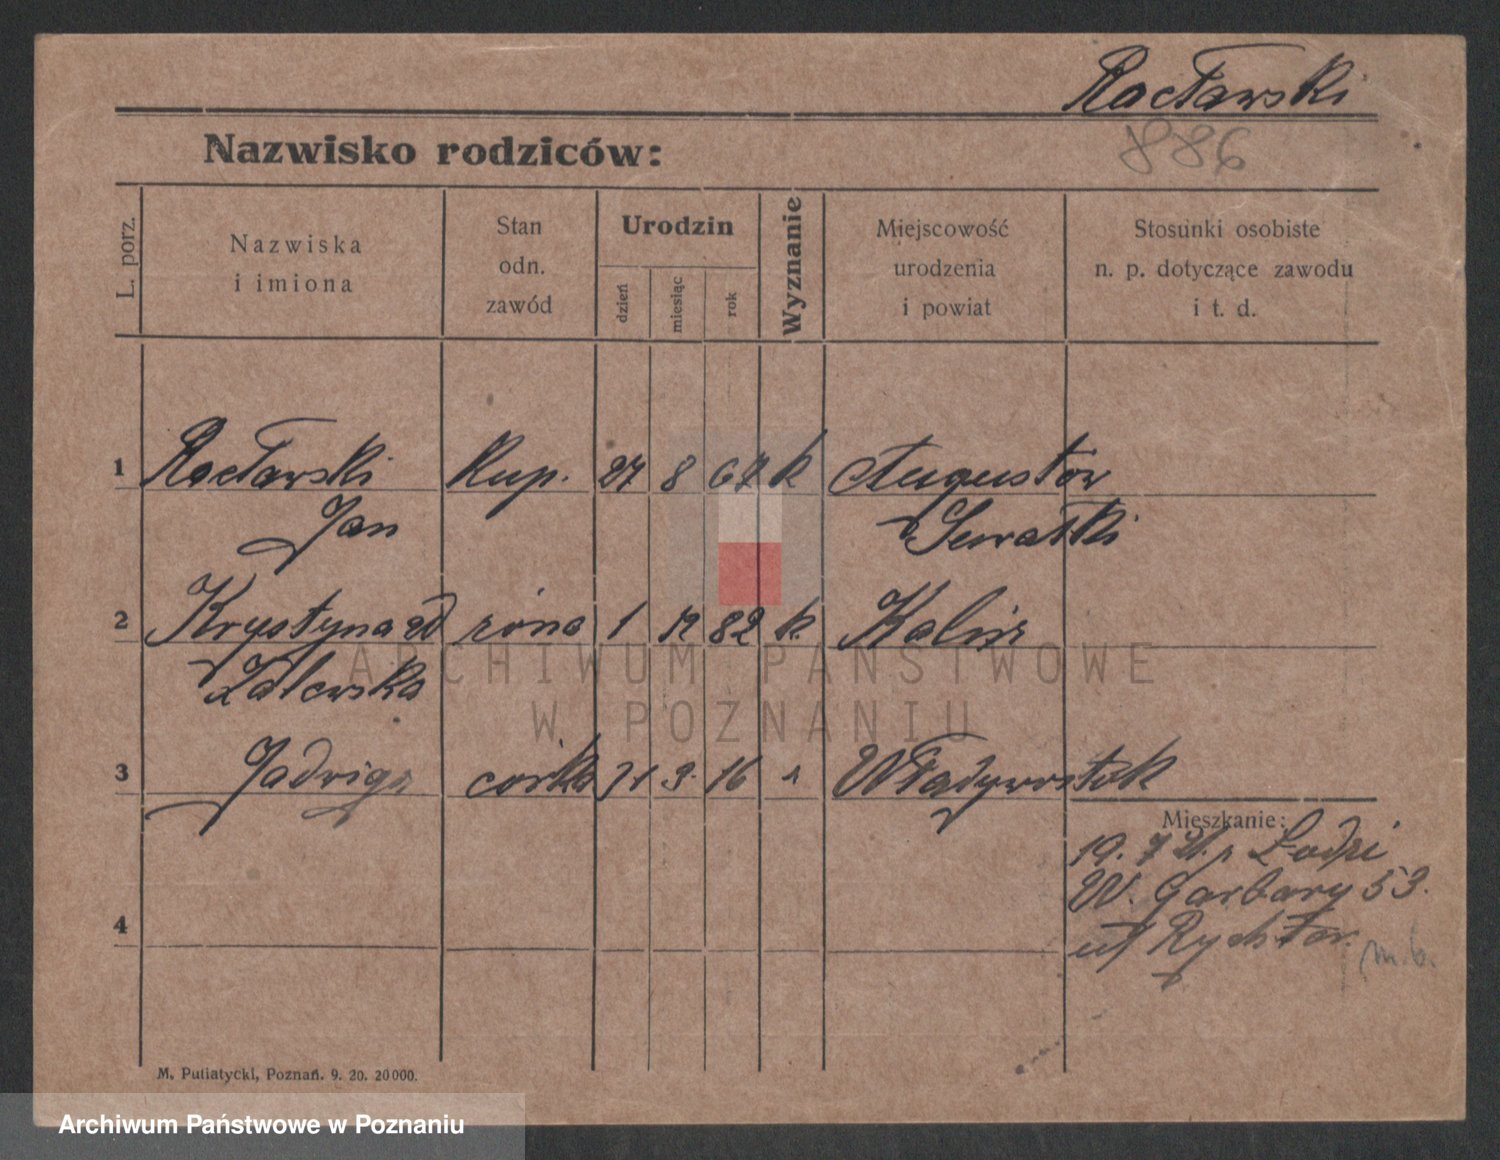 Racławski
886
Nazwisko rodziców:
L. porz.
Nazwiska
i imiona
Stan
odn.
zawód
Urodzin
dzień
miesiąc
rok
Wyznanie
Miejscowość
urodzenia
i powiat
Stosunki osobiste
n. p. dotyczące zawodu
i t. d.
1 Racławski Kup. 27 8 67 k Augustów
Jan Suwałki
2 Krystyna żona 1 12 82 k. Kalisz
Zalewska
3 Jadwiga córka 9. 16 Władywostok
Mieszkanie:
19. 7 21. z Łodzi
W. Garbary 53.
4
m.b.
M. Putiatycki, Poznań. 9. 20. 20000.
ARCHIWUM PAŃSTWOWE
W POZNANIU
Archiwum Państwowe w Poznaniu